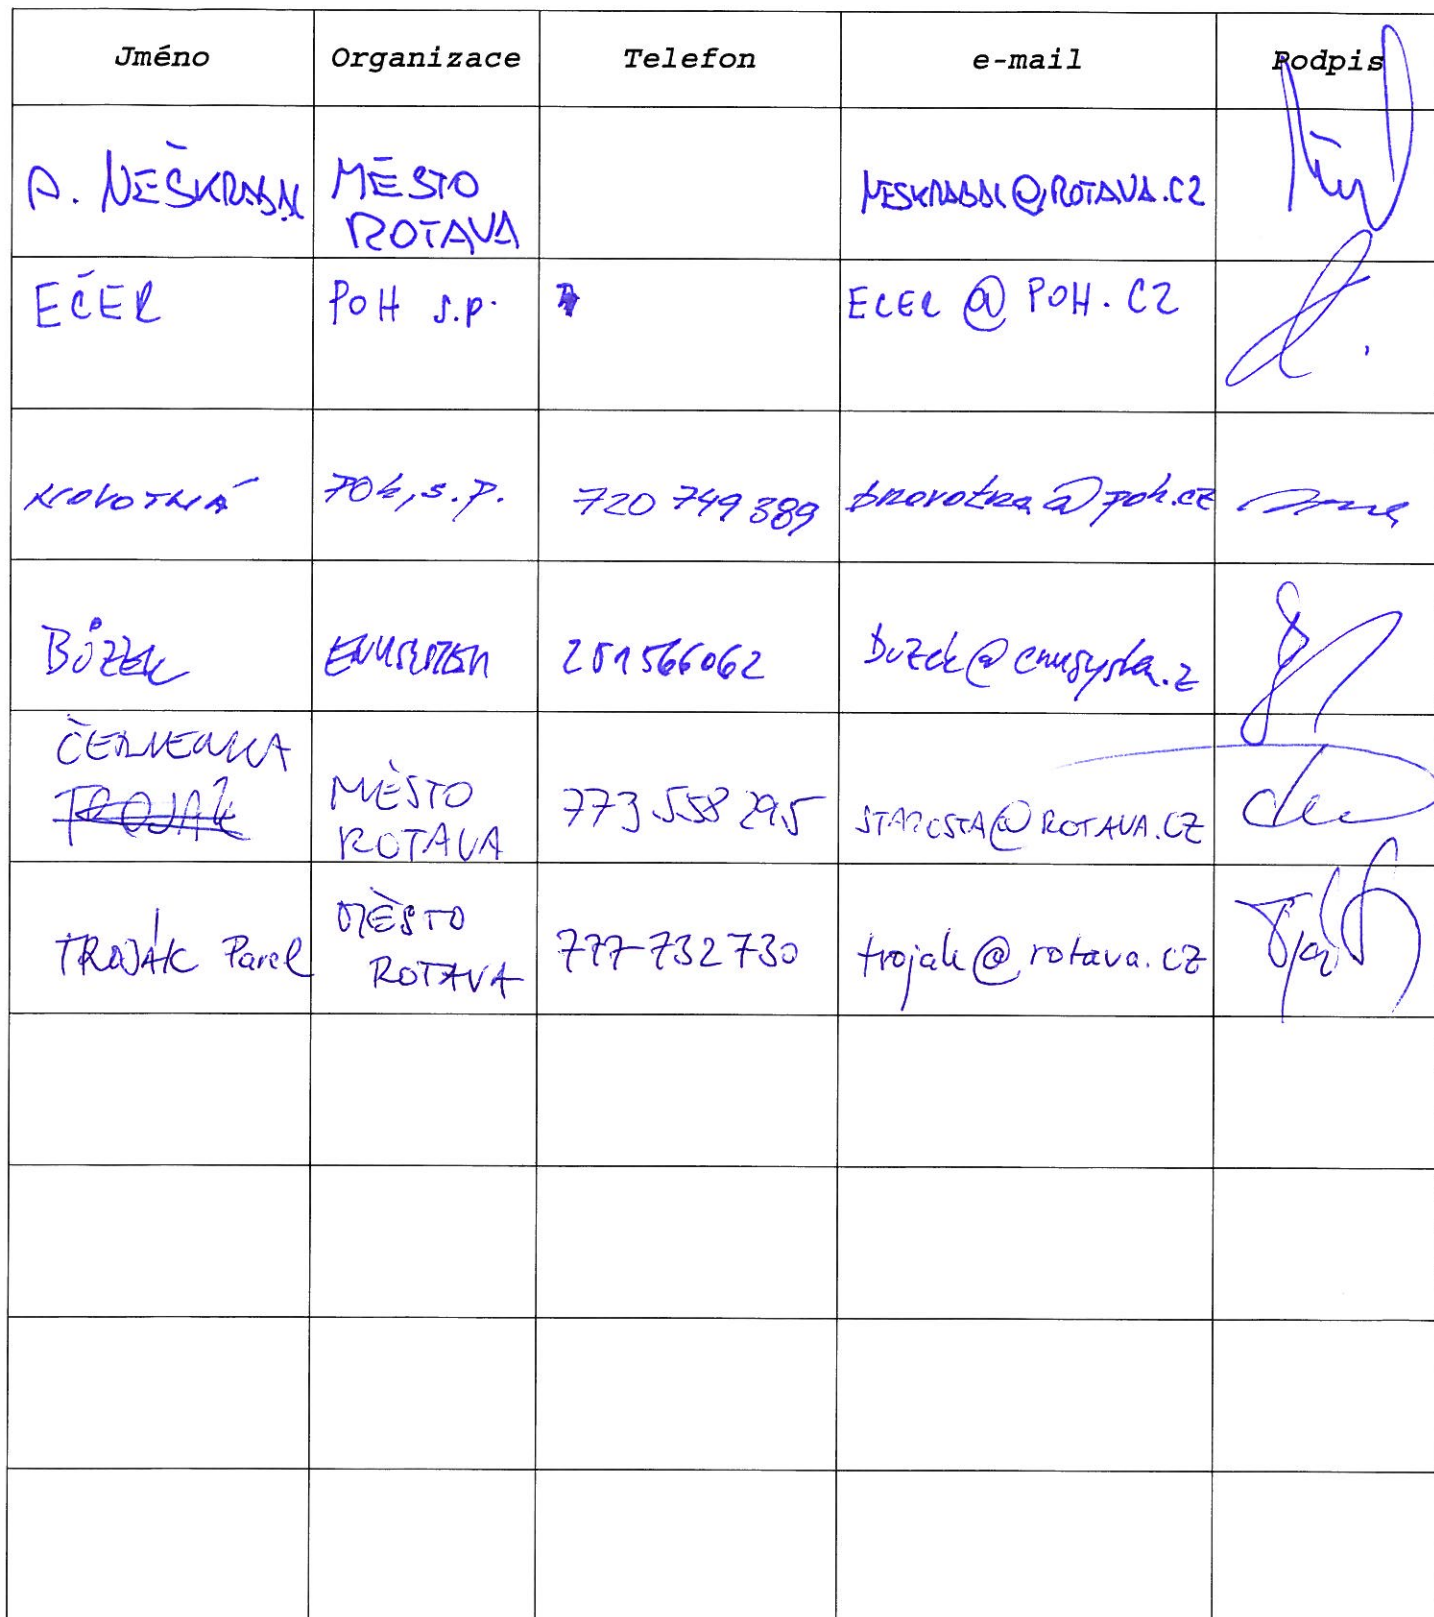 Jméno Organizace Telefon e-mail Podpis
A. NEŠKRABAL MĚSTO ROTAVA NESKRABAL@ROTAVA.CZ
EČER POH s.p. ECER @ POH.CZ
NOVOTNÁ POh, s.p. 720 749 389 bnovotna@poh.cz
BŮZEK 251566062
ČERVENKA
TROJAK MĚSTO ROTAVA 773 558 295 STAROSTA@ROTAVA.CZ
TROJÁK Pavel MĚSTO ROTAVA 777 732 730 trojak@rotava.cz